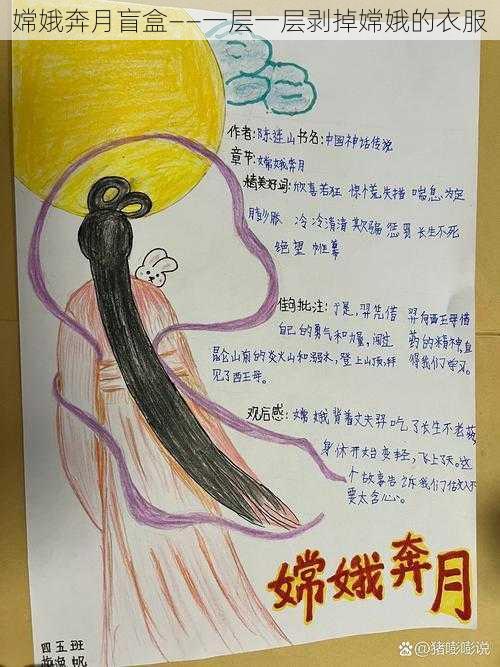 嫦娥奔月盲盒——一层一层剥掉嫦娥的衣服
作者:陈连山书名:中国神话传说
章节:嫦娥奔月
精美好词:欣喜若狂 惊慌失措 喘息为定
膨胀 冷冷清清 欺骗 惩罚 长生不死
绝望 帷幕
佳句批注:于是,羿凭借
自己的勇气和力量,闯过
昆仑山前的炎火山和弱水,登上山顶,拜
见了西王母。
羿向西王母借
药的精神,值
得我们学习。
观后感:嫦娥背着丈夫羿吃了长生不老药
身休开始变轻,飞上了天。这
个故事告诉我们做人不
要太贪心。
嫦娥奔月
四五班
@猪嘭嘭说